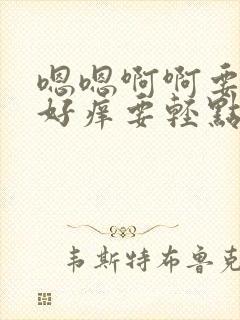 嗯嗯啊啊要
好痒要轻點
韦斯特布鲁克